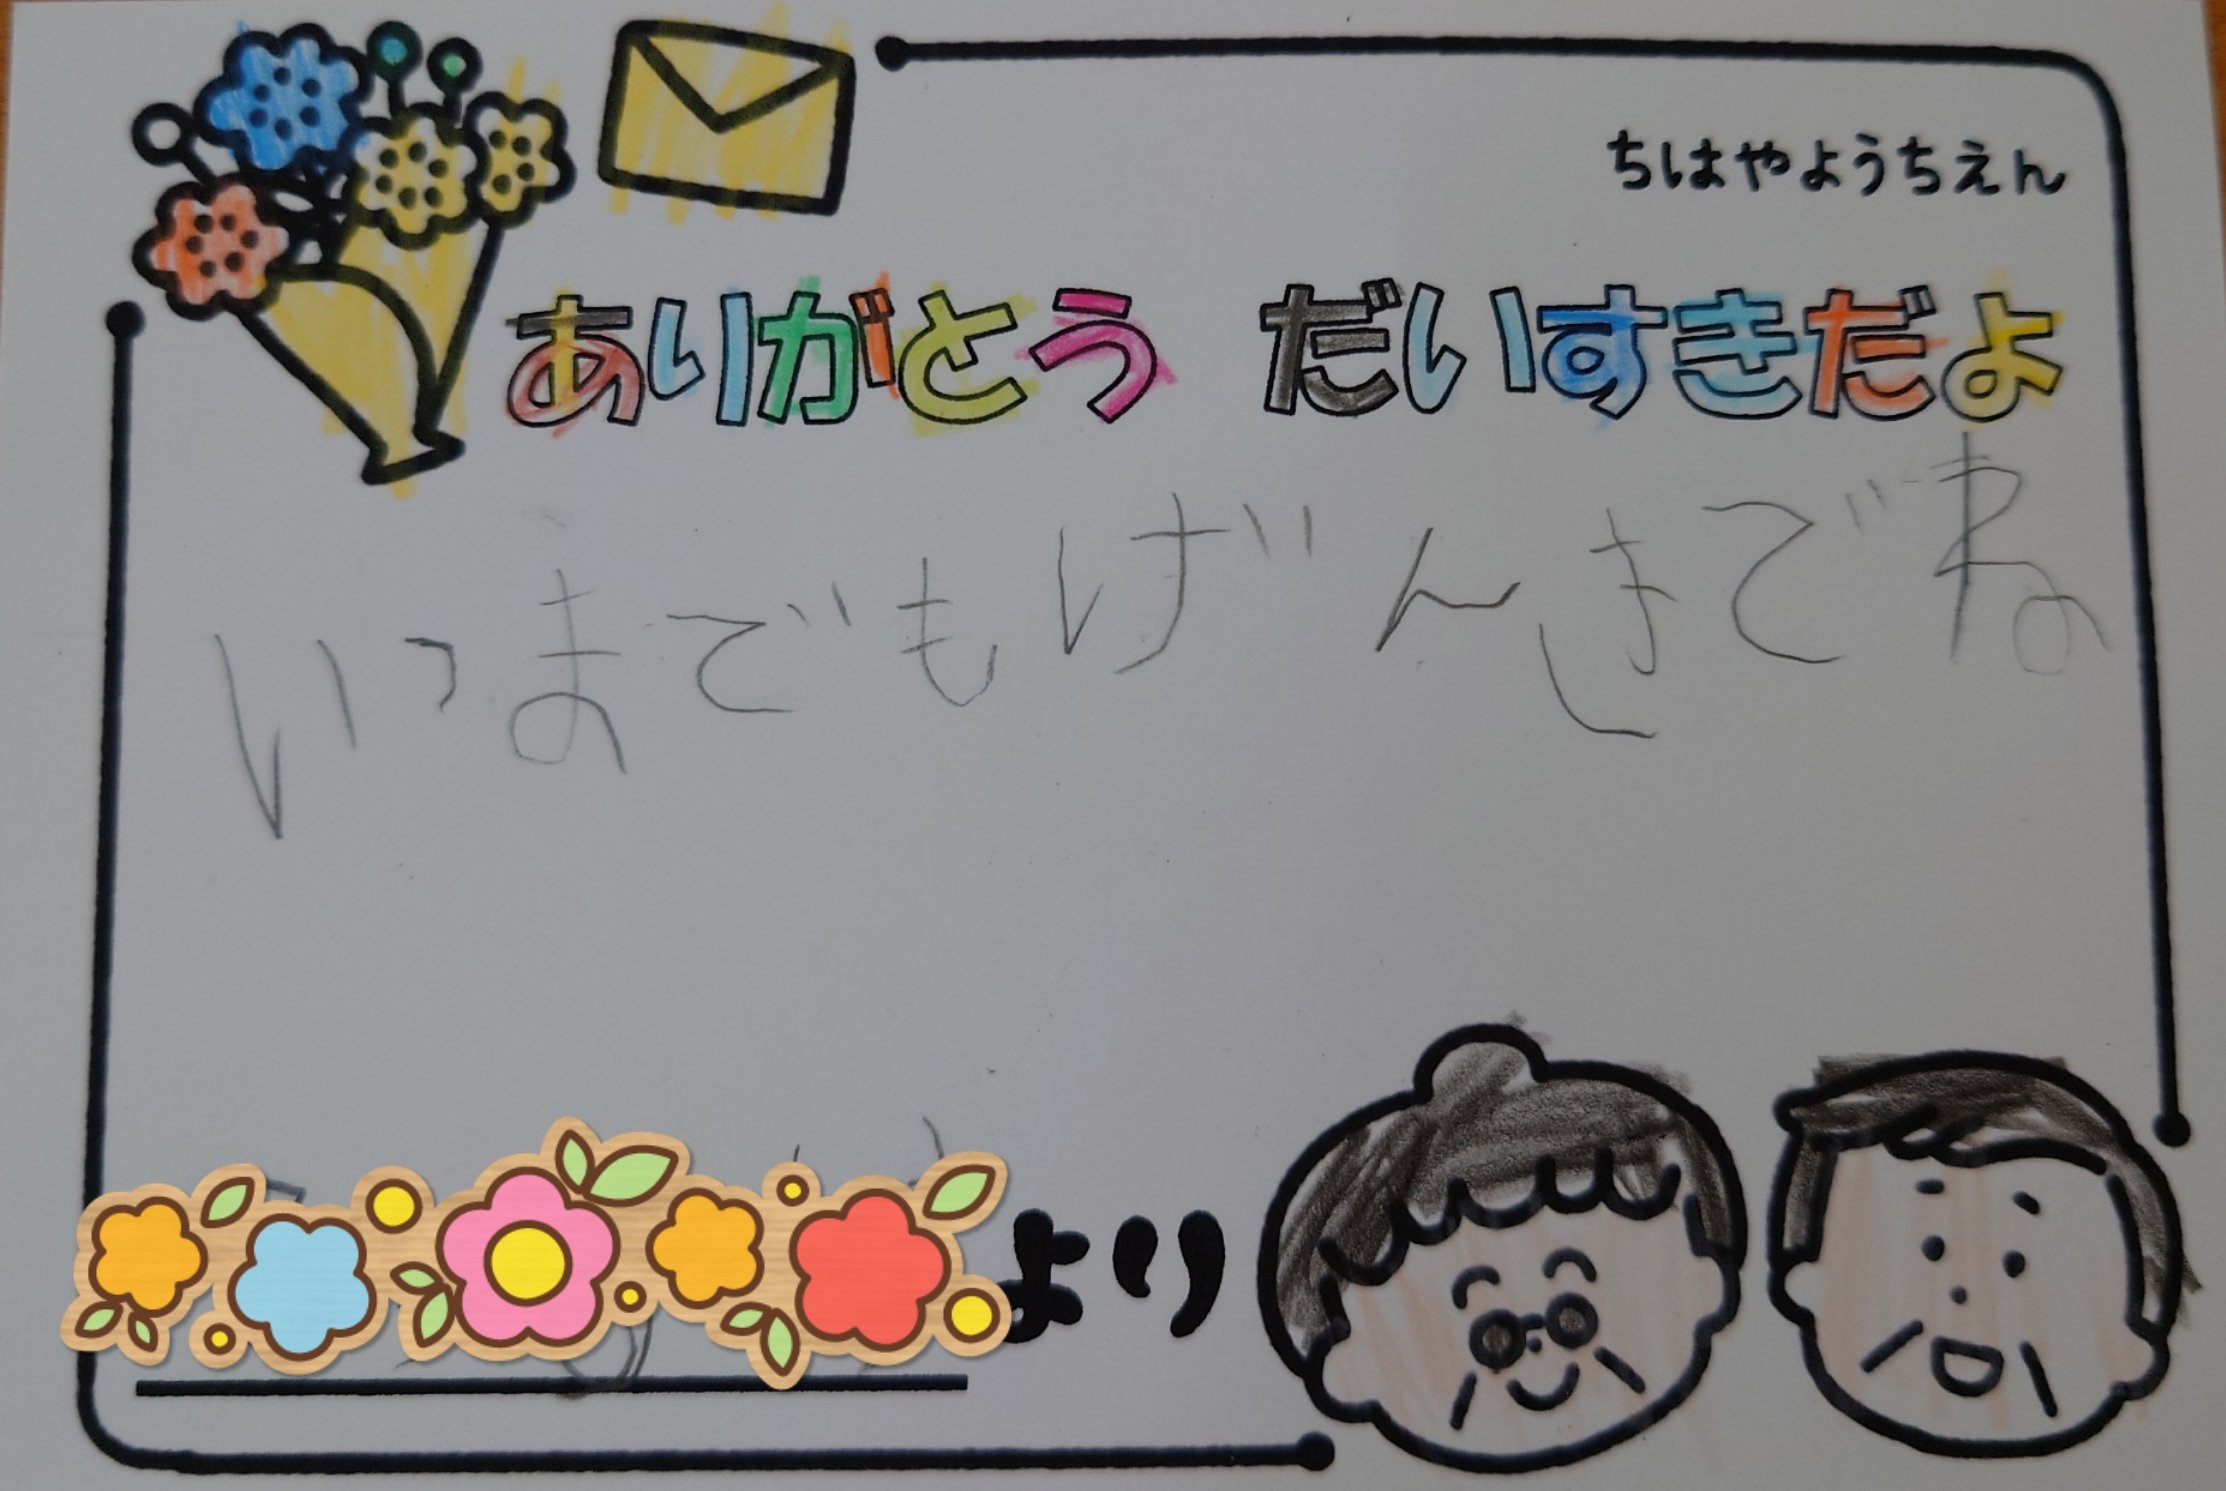 ちはやようちえん
ありがとう だいすきだよ
いつまでもげんきでね
より